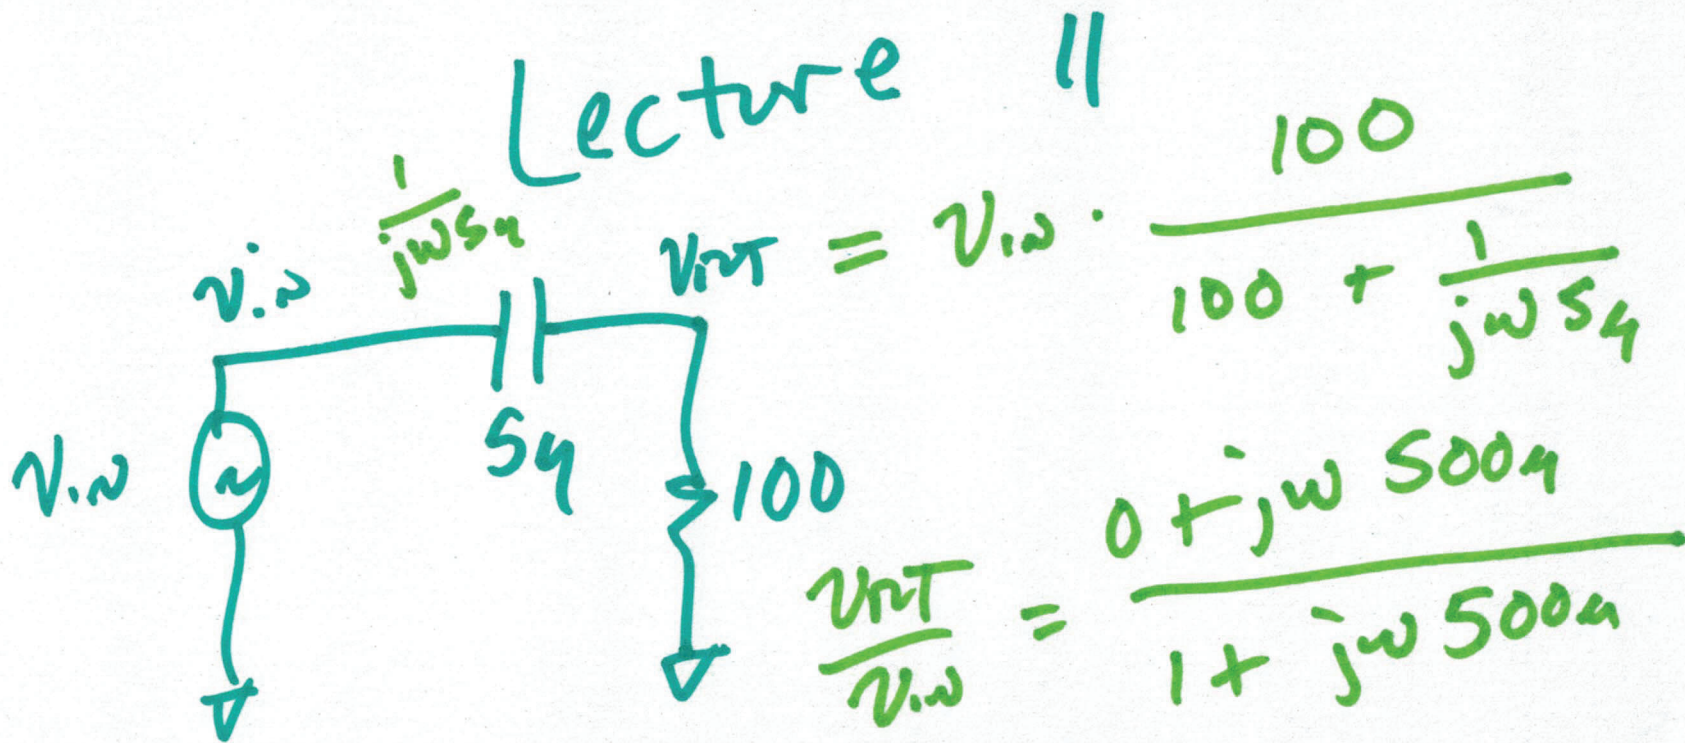 Lecture 11
1/jω5μ
vin
vout = vin · 100/(100 + 1/jω5μ)
5μ
vin
100
vout/vin = (0 + jω 500μ)/(1 + jω 500μ)